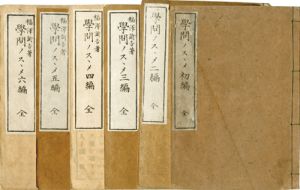 學問ノスヽメ 初編 全
學問ノスヽメ 二編 全
福澤諭吉著
學問ノスヽメ 三編 全
福澤諭吉著
學問ノスヽメ 四編 全
福澤諭吉著
學問ノスヽメ 五編 全
福澤諭吉著
學問ノスヽメ 六編 全